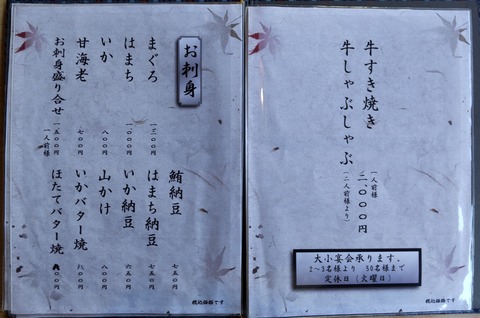 お刺身
まぐろ 一三〇〇円
はまち 一〇〇〇円
いか 八〇〇円
甘海老 七〇〇円
お刺身盛り合せ 一五〇〇円
一人前様
鮪納豆 七五〇円
はまち納豆 七五〇円
いか納豆 六五〇円
山かけ 八〇〇円
いかバター焼 八〇〇円
ほたてバター焼 八〇〇円
税込価格です
牛すき焼き
牛しゃぶしゃぶ
一人前様
二、〇〇〇円
(二人前様より)
大小宴会承ります。
2~3名様より 50名様まで
定休日(火曜日)
税込価格です